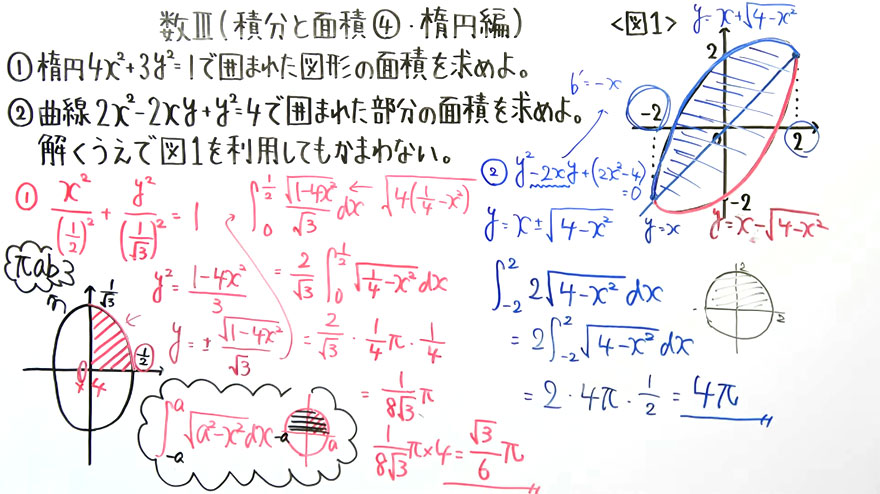 数Ⅲ(積分と面積④・楕円編)
①楕円4x²+3y²=1で囲まれた図形の面積を求めよ。
②曲線2x²-2xy+y²=4で囲まれた部分の面積を求めよ。
解くうえで図1を利用してもかまわない。
<図1>
y=x+√(4-x²)
2
-2
0
2
-2
y=x
y=x-√(4-x²)
① x²/(1/2)² + y²/(1/√3)² = 1
πab
y²=(1-4x²)/3
y=±√(1-4x²)/√3
1/√3
1/2
0
×4
∫_0^{1/2} √(1-4x²)/√3 dx ← √(4(1/4-x²))
=2/√3 ∫_0^{1/2} √(1/4-x²) dx
=2/√3・1/4π・1/4
=1/(8√3)π
1/(8√3)π×4=√3/6 π
∫_{-a}^{a} √(a²-x²)dx
-a
a
b'=-x
② y²-2xy+(2x²-4)
=0
y=x±√(4-x²)
∫_{-2}^{2} 2√(4-x²) dx
=2∫_{-2}^{2} √(4-x²) dx
=2・4π・1/2=4π
2
2